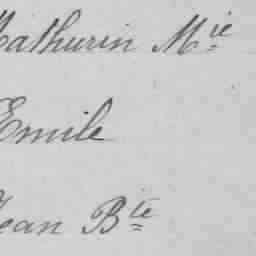 Mathurin Mie
Emile
Jean Bte